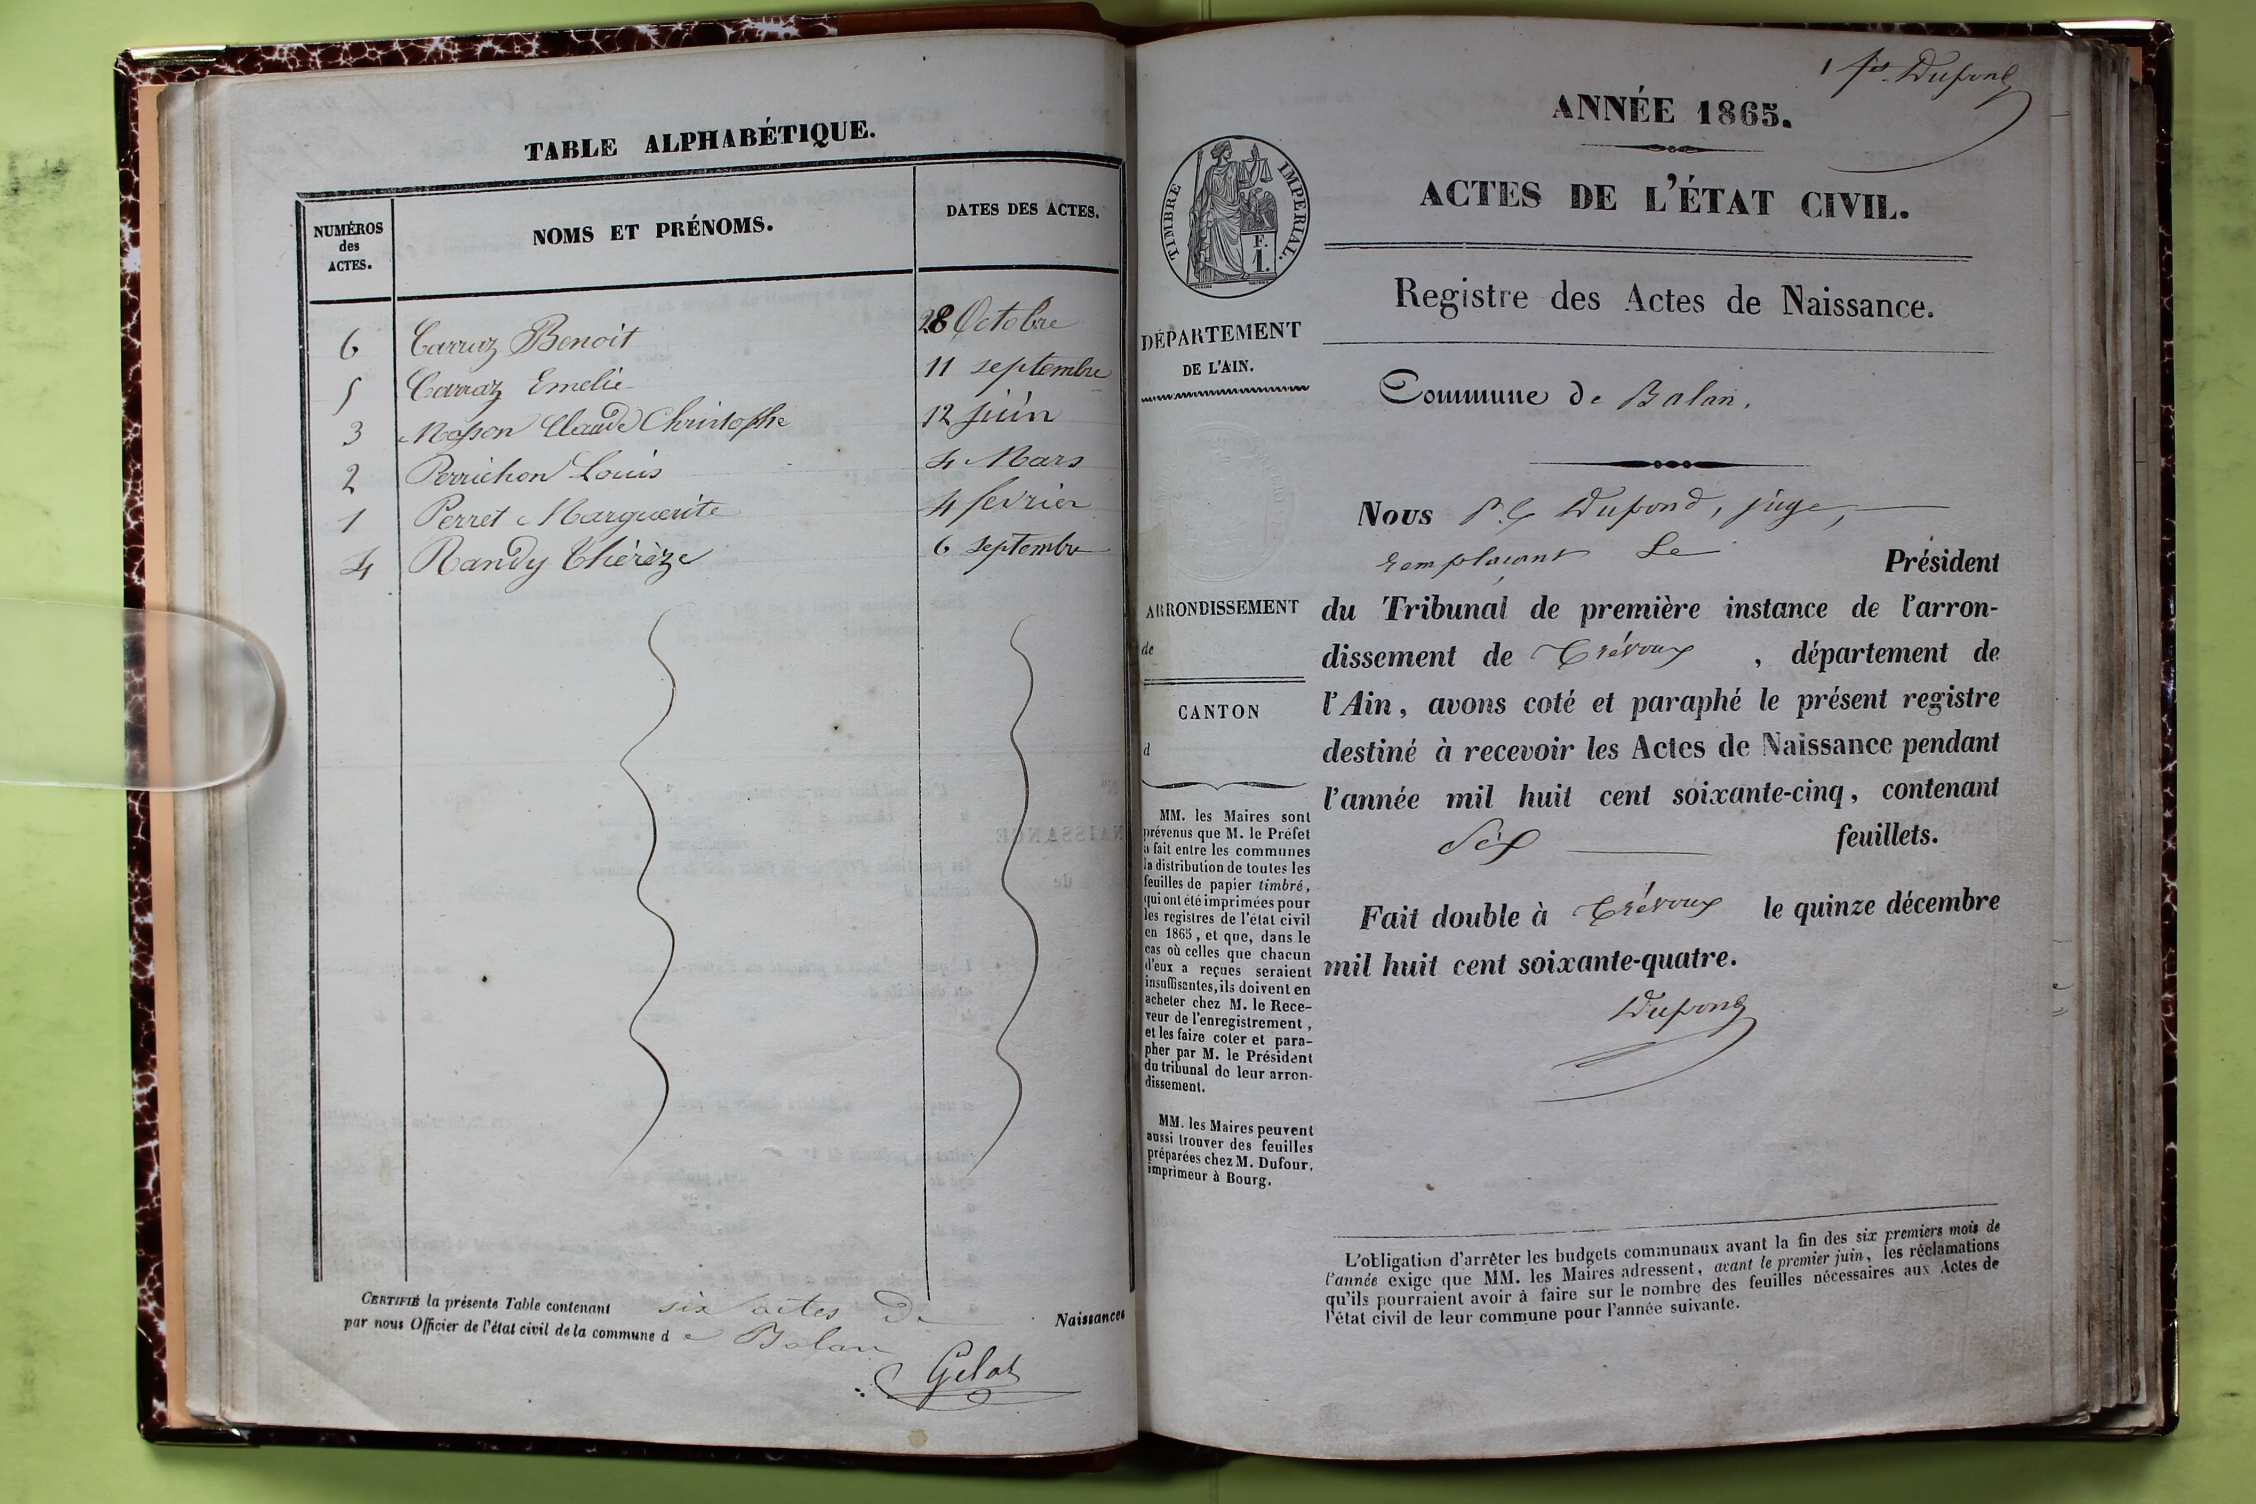 TABLE ALPHABÉTIQUE.
NUMÉROS
des
ACTES.
NOMS ET PRÉNOMS.
DATES DES ACTES.
6 Carraz Benoit 28 Octobre
5 Carraz Emelie 11 septembre
3 Masson Claude Christophe 12 juin
2 Perrichon Louis 4 Mars
1 Perret Marguerite 4 fevrier
4 Randy Thérèze 6 septembre
CERTIFIÉ la présente Table contenant six actes de Naissances
par nous Officier de l'état civil de la commune d e Balan
Gelas
1 Dupond
ANNÉE 1865.
ACTES DE L'ÉTAT CIVIL.
Registre des Actes de Naissance.
TIMBRE IMPERIAL.
F.
1.
DÉPARTEMENT
DE L'AIN.
ARRONDISSEMENT
de
CANTON
d
MM. les Maires sont
prévenus que M. le Préfet
a fait entre les communes
la distribution de toutes les
feuilles de papier timbré,
qui ont été imprimées pour
les registres de l'état civil
en 1865, et que, dans le
cas où celles que chacun
d'eux a reçues seraient
insuffisantes, ils doivent en
acheter chez M. le Rece-
veur de l'enregistrement,
et les faire coter et para-
pher par M. le Président
du tribunal de leur arron-
dissement.
MM. les Maires peuvent
aussi trouver des feuilles
préparées chez M. Dufour,
imprimeur à Bourg.
Commune de Balan.
Nous Dupond, juge,
remplaçant Le Président
du Tribunal de première instance de l'arron-
dissement de Trévoux, département de
l'Ain, avons coté et paraphé le présent registre
destiné à recevoir les Actes de Naissance pendant
l'année mil huit cent soixante-cinq, contenant
Six feuillets.
Fait double à Trévoux le quinze décembre
mil huit cent soixante-quatre.
Dupond
L'obligation d'arrêter les budgets communaux avant la fin des six premiers mois de
l'année exige que MM. les Maires adressent, avant le premier juin, les réclamations
qu'ils pourraient avoir à faire sur le nombre des feuilles nécessaires aux Actes de
l'état civil de leur commune pour l'année suivante.